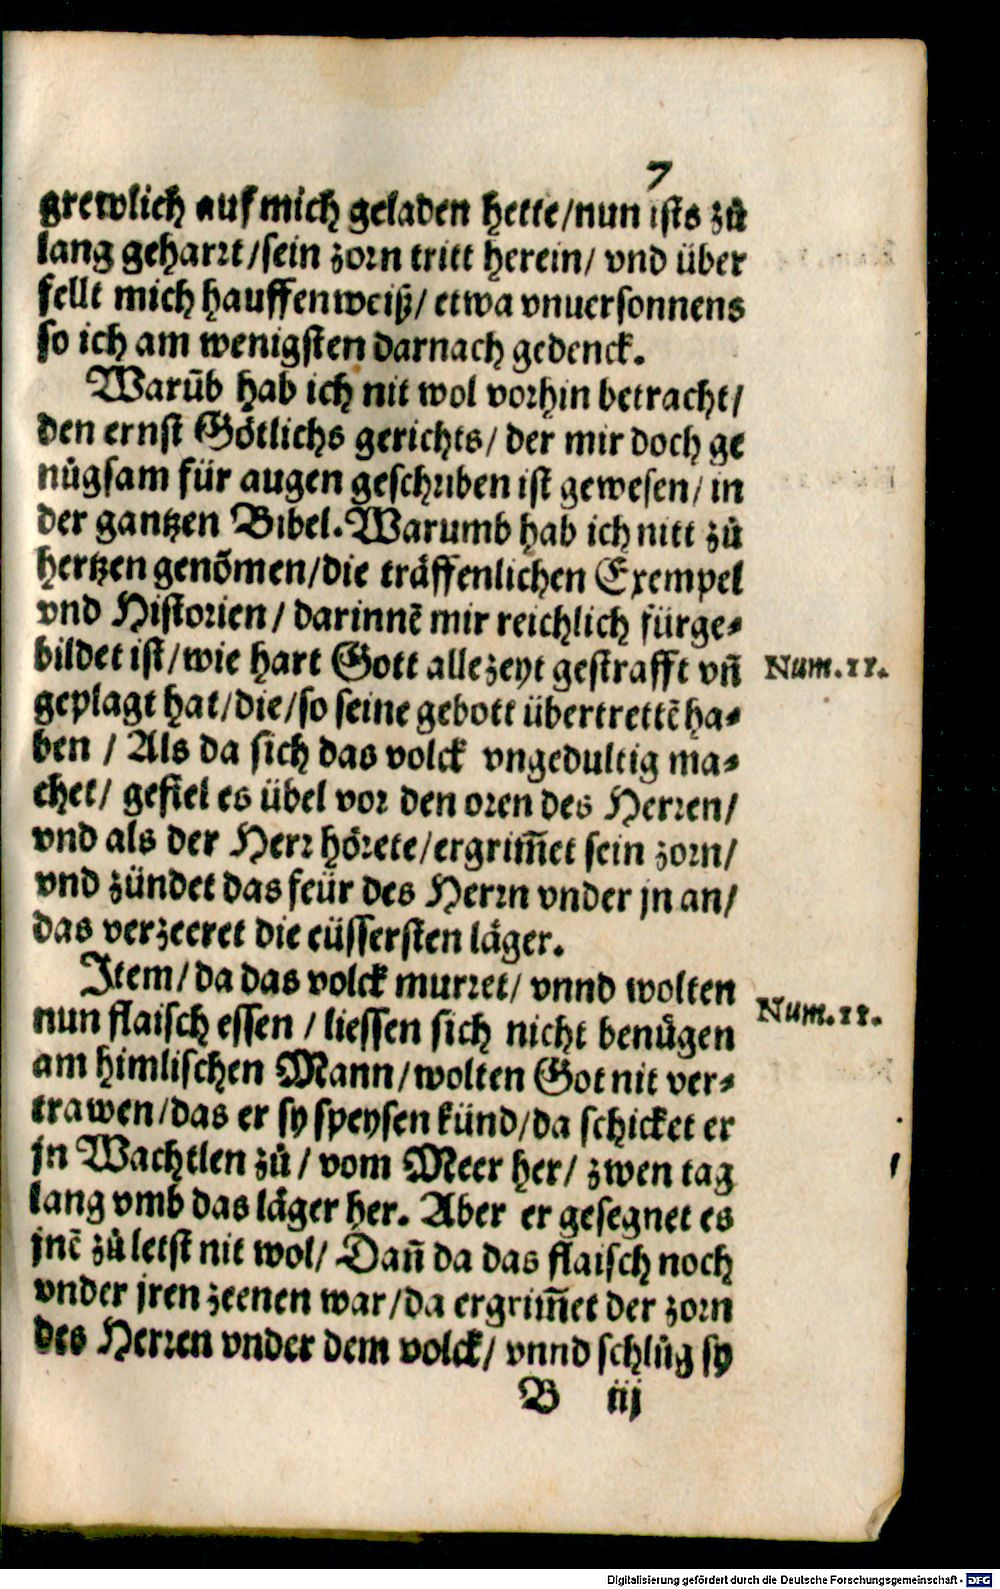 7
grewlich auf mich geladen hette/nun ists zů
lang geharrt/sein zorn tritt herein/ vnd über
fellt mich hauffenweiß/ etwa vnuersonnens
so ich am wenigsten darnach gedenck.
Warūb hab ich nit wol vorhin betracht/
den ernst Götlichs gerichts/ der mir doch ge
nůgsam für augen geschriben ist gewesen/ in
der gantzen Bibel. Warumb hab ich nitt zů
hertzen genōmen/die träffenlichen Exempel
vnd Historien/ darinnē mir reichlich fürge⸗
bildet ist/wie hart Gott allezeyt gestrafft vñ
Num.11.
geplagt hat/die/so seine gebott übertrettē ha⸗
ben / Als da sich das volck vngedultig ma⸗
chet/ gefiel es übel vor den oren des Herren/
vnd als der Herr hörete/ergrim̄et sein zorn/
vnd zündet das feür des Herrn vnder jn an/
das verzeeret die eüssersten läger.
Item/da das volck murret/ vnnd wolten
Num.11.
nun flaisch essen / liessen sich nicht benůgen
am himlischen Mann/wolten Got nit ver⸗
trawen/das er sy speysen künd/da schicket er
jn Wachtlen zů/ vom Meer her/ zwen tag
lang vmb das läger her. Aber er gesegnet es
jnē zů letst nit wol/ Dañ da das flaisch noch
vnder jren zeenen war/da ergrim̄et der zorn
des Herren vnder dem volck/ vnnd schlůg sy
B iij
Digitalisierung gefördert durch die Deutsche Forschungsgemeinschaft - DFG